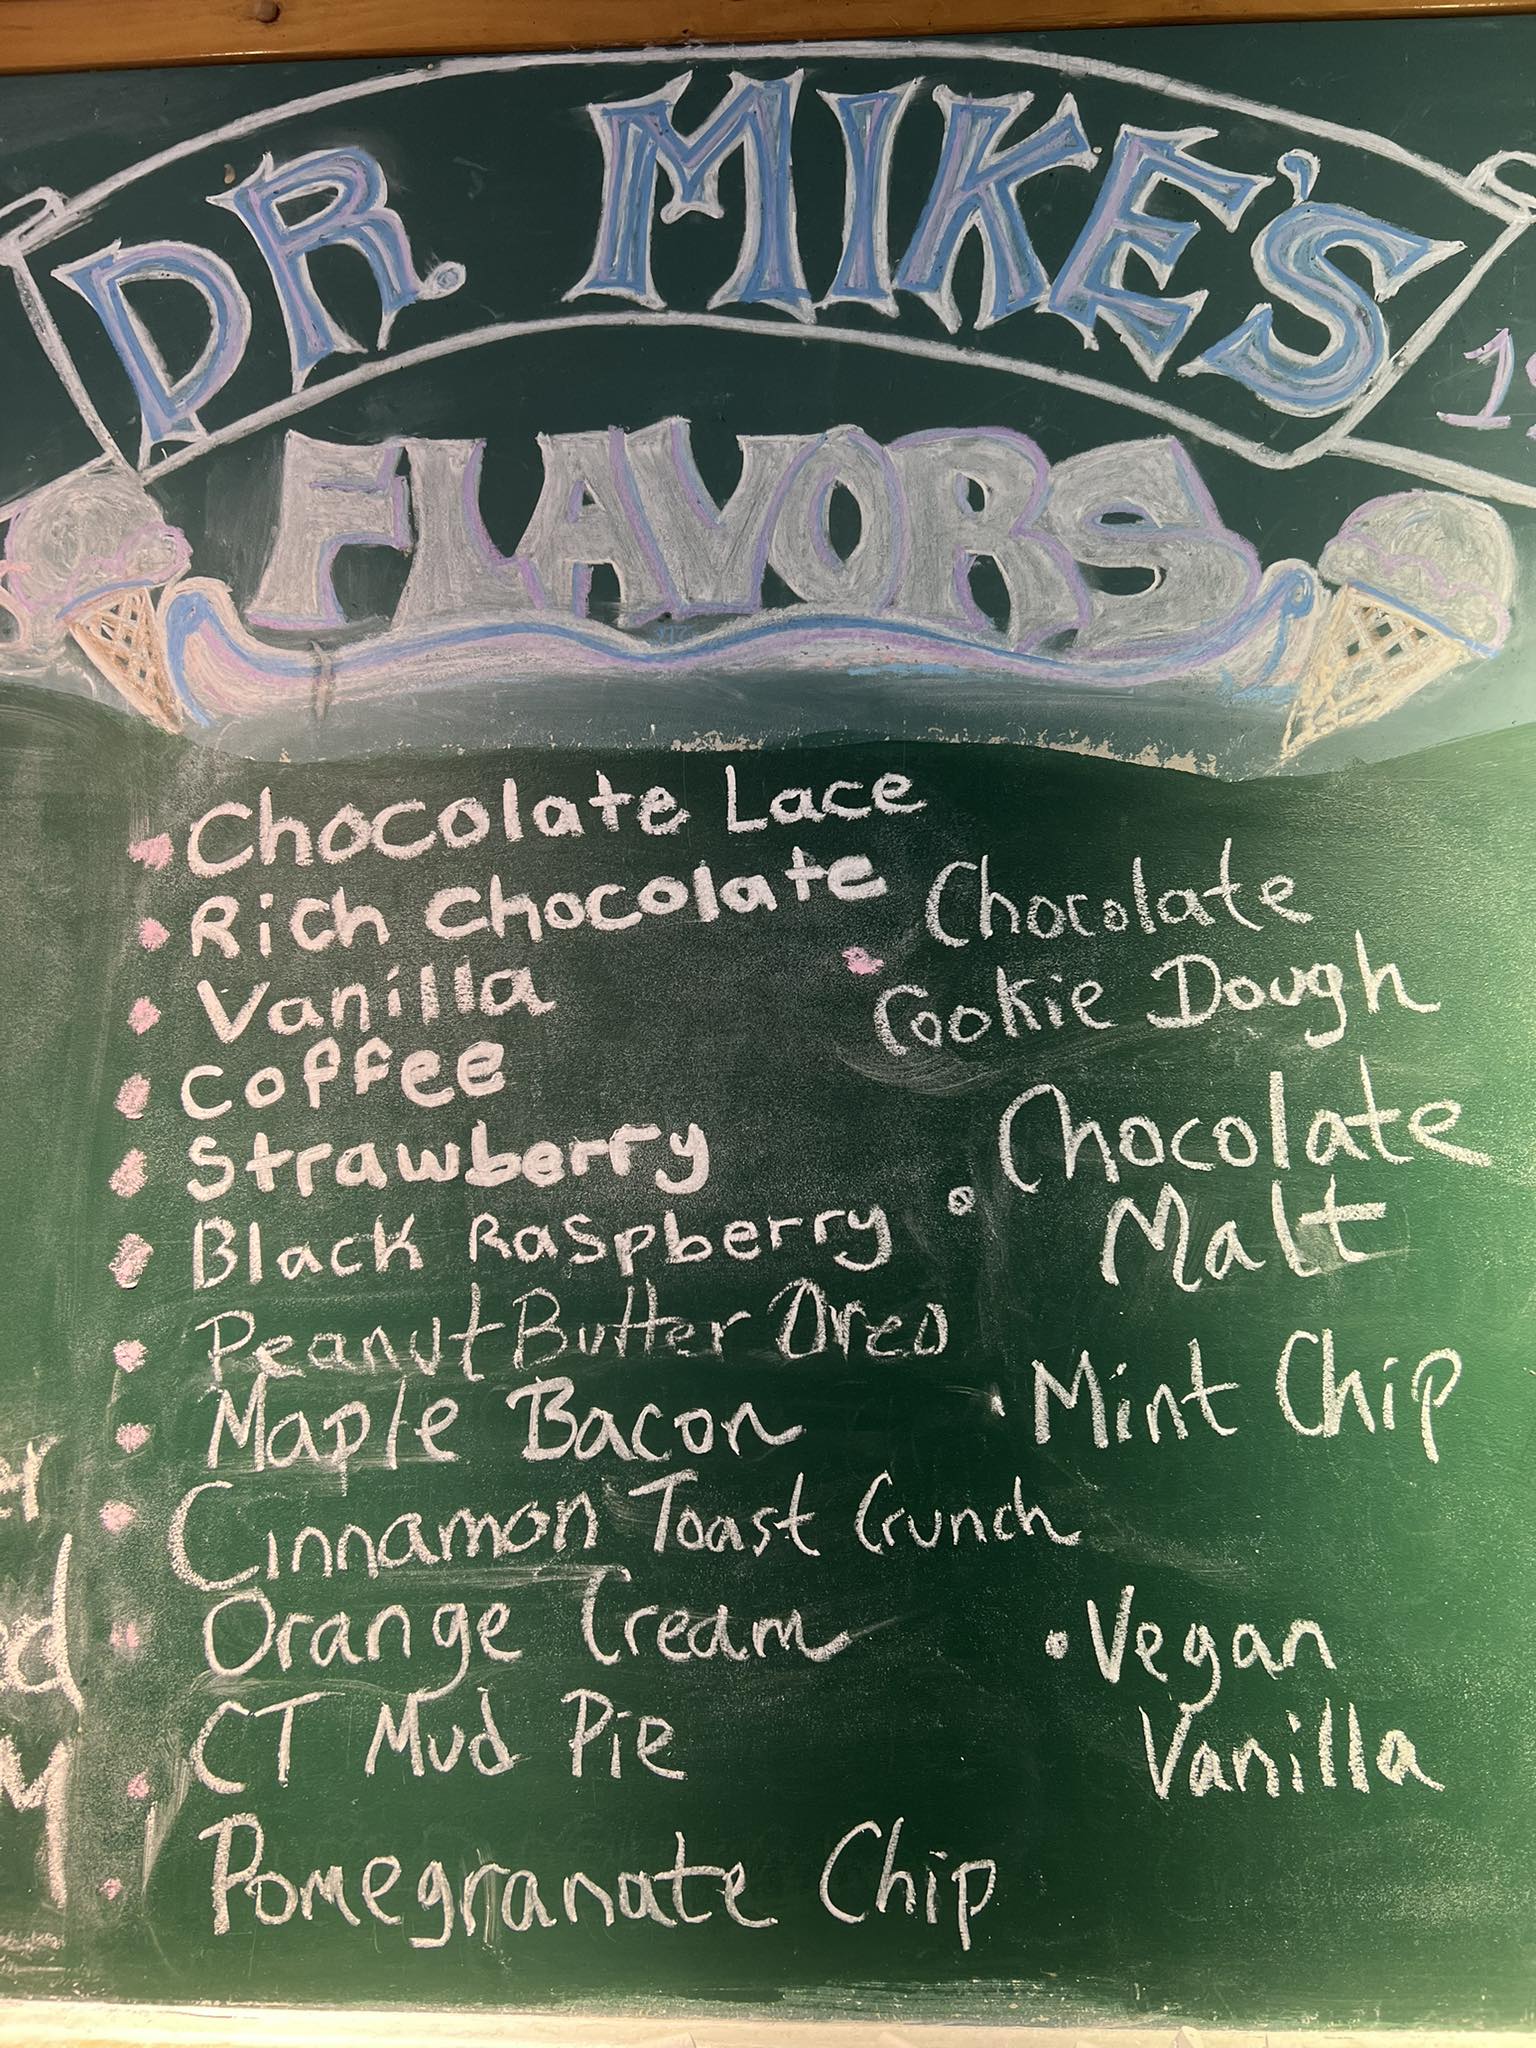 DR. MIKE'S
FLAVORS
Chocolate Lace
Rich Chocolate
Vanilla
Coffee
Strawberry
Black Raspberry
Peanut Butter Oreo
Maple Bacon
Cinnamon Toast Crunch
Orange Cream
CT Mud Pie
Pomegranate Chip
Chocolate
Cookie Dough
Chocolate
Malt
Mint Chip
Vegan
Vanilla